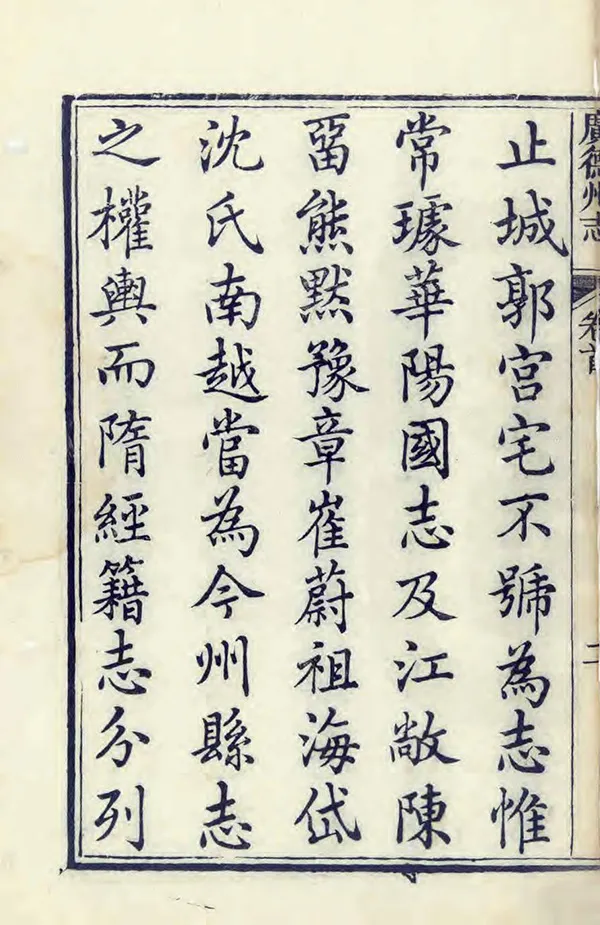 廣德州志
卷首
二
止城郭宮宅不號為志惟
常璩華陽國志及江敞陳
畱熊默豫章崔蔚祖海岱
沈氏南越當為今州縣志
之權輿而隋經籍志分列